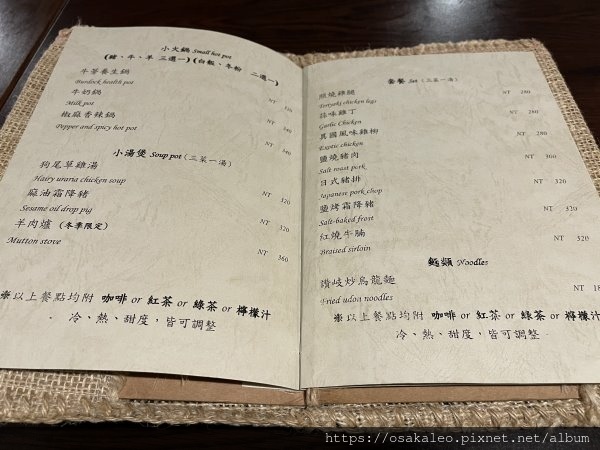 小火鍋 Small hot pot
(豬、牛、羊 三選一)(白飯、冬粉 二選一)
牛蒡養生鍋
Burdock health pot
NT 320
牛奶鍋
Milk pot
NT 340
椒麻香辣鍋
Pepper and spicy hot pot
NT 340
小湯煲 Soup pot (三菜一湯)
狗尾草雞湯
Hairy uraria chicken soup
NT 320
麻油霜降豬
Sesame oil drop pig
NT 320
羊肉爐 (冬季限定)
Mutton stove
NT 360
※以上餐點均附 咖啡 or 紅茶 or 綠茶 or 檸檬汁
冷、熱、甜度，皆可調整
套餐 Set (三菜一湯)
照燒雞腿
Teriyaki chicken legs
NT 280
蒜味雞丁
Garlic Chicken
NT 280
異國風味雞柳
Exotic chicken
NT 280
鹽燒豬肉
Salt roast pork
NT 360
日式豬排
Japanese pork chop
NT 320
鹽烤霜降豬
Salt-baked frost
NT 320
紅燒牛腩
Braised sirloin
NT 320
麵類 Noodles
讚岐炒烏龍麵
Fried udon noodles
NT
※以上餐點均附 咖啡 or 紅茶 or 綠茶 or 檸檬汁
冷、熱、甜度，皆可調整
https://osakaleo.pixnet.net/album